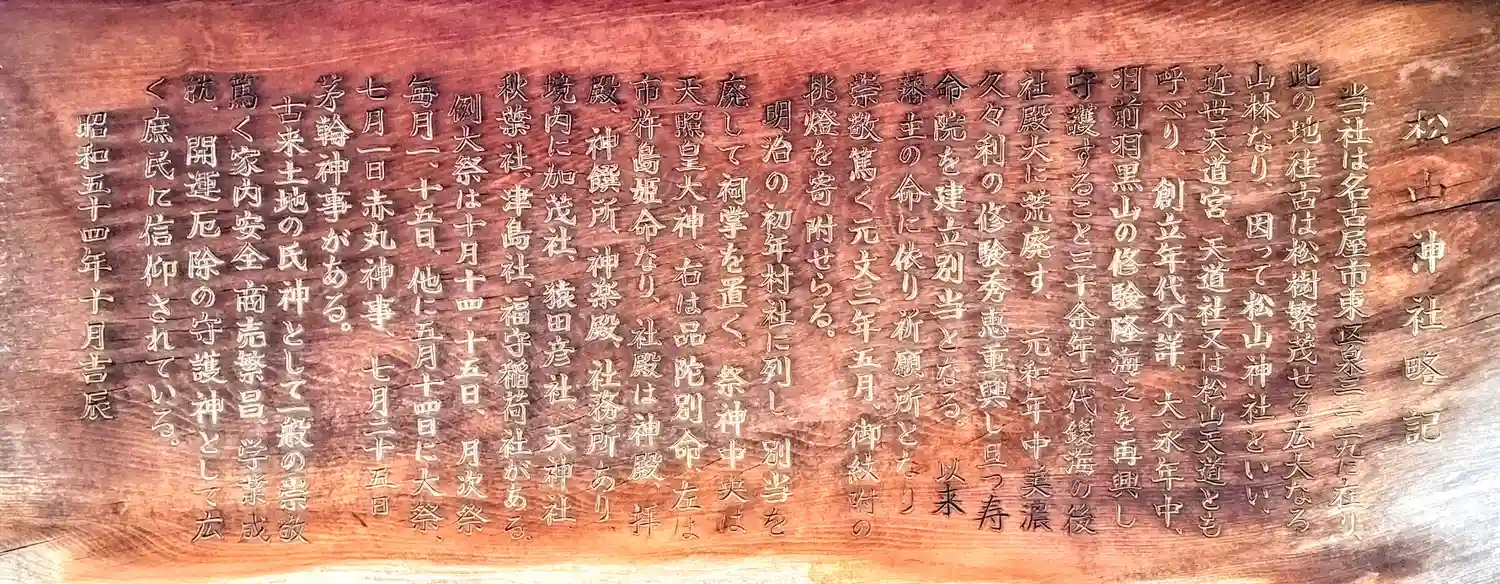 松山神社略記
当社は名古屋市東区泉三ー二九に在り、
此の地往古は松樹繁茂せる広大なる
山林なり、因って松山神社といい、
近世天道宮、天道社又は松山天道とも
呼べり、創立年代不詳、大永年中、
羽前羽黒山の修験隆海之を再興し
守護すること三十余年二代鍐海の後
社殿大に荒廃す、元和年中美濃
久々利の修験秀恵重興し且つ寿
命院を建立別当となる。以来
藩主の命に依り祈願所となり
崇敬篤く元文三年五月、御紋附の
桃燈を寄附せらる。
明治の初年村社に列し、別当を
廃して祠掌を置く、祭神中央は
天照皇大神、右は品陀別命左は
市杵島姫命なり、社殿は神殿、拝
殿、神饌所、神楽殿、社務所あり、
境内に加茂社、猿田彦社、天神社
秋葉社、津島社、福守稲荷社がある。
例大祭は十月十四、十五日、月次祭
毎月一、十五日、他に五月十四日に大祭、
七月一日赤丸神事、七月二十五日
茅輪神事がある。
古来土地の氏神として一般の崇敬
篤く家内安全、商売繁昌、学業成
就、開運厄除の守護神として広
く庶民に信仰されている。
昭和五十四年十月吉辰